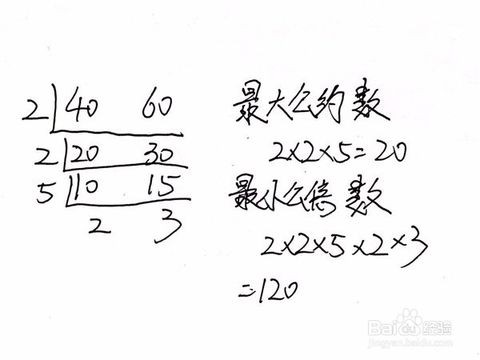 2 40 60
2 20 30
5 10 15
2 3
最大公约数
2×2×5=20
最小公倍数
2×2×5×2×3
=120
Baidu经验
jingyan.baidu.com